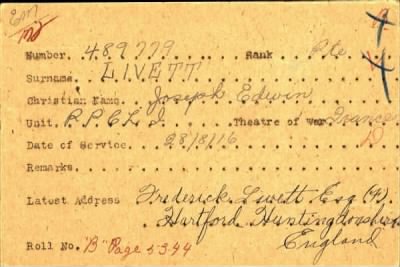 Em
Number. 489779 Rank Pte
Surname. LIVETT
Christian Name. Joseph Edwin
Unit. P.P.C.L.I. Theatre of War France
Date of Service. 28/8/16 D
Remarks
Latest Address Frederick Livett Esq (F).
Hartford Huntingdonshire
England
Roll No. "B" Page 5344